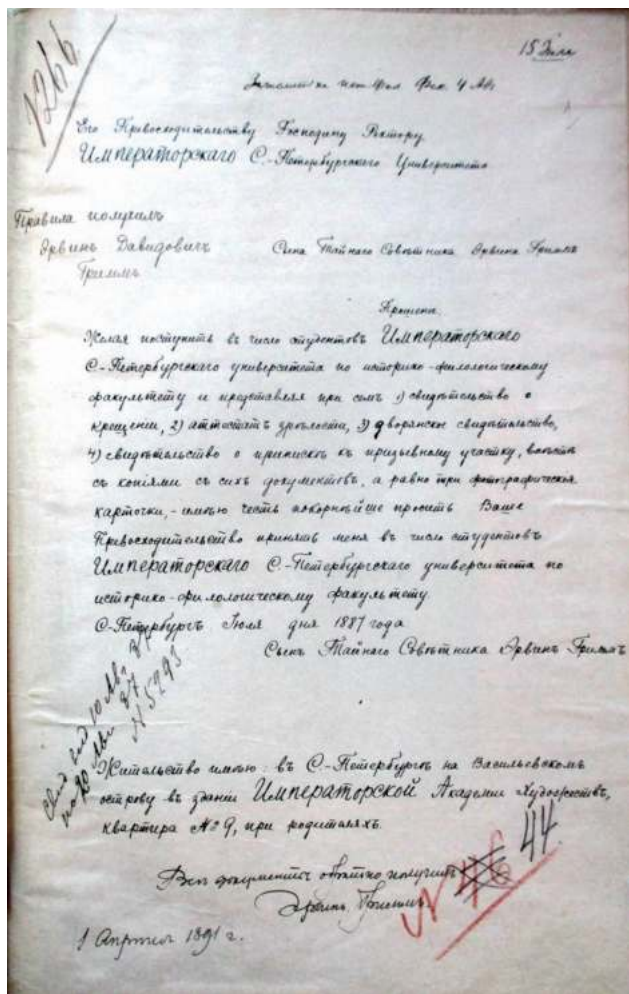 1266
15 Июля
ист. фил. Фак. 4 Авг
Его Превосходительству Господину Ректору
Императорскаго С.-Петербургского Университета
Правила получилъ
Эрвинъ Давидовичъ
Гриммъ
Сына Тайнаго Совѣтника Эрвина Гримма
Прошение
Желая поступить въ число студентовъ Императорскаго
С.-Петербургскаго университета по историко-филологическому
факультету и представляя при семъ 1) свидѣтельство о
крещении, 2) аттестатъ зрѣлости, 3) дворянское свидѣтельство,
4) свидѣтельство о припискѣ къ призывному участку, вмѣстѣ
съ копіями съ сихъ документовъ, а равно три фотографическія
карточки, - имѣю честь покорнѣйше просить Ваше
Превосходительство принять меня въ число студентовъ
Императорскаго С.-Петербургскаго университета по
историко-филологическому факультету.
С-Петербургъ Іюля дня 1887 года
Сынъ Тайнаго Совѣтника Эрвинъ Гриммъ
10 Авг 87
по 20 Авг 87
N 5293
Жительство имѣю: въ С-Петербургѣ на Васильевскомъ
острову въ зданіи Императорской Академіи Художествъ,
квартира № 9, при родителяхъ.
44
Всѣ документы обратно получилъ
Эрвинъ Гриммъ
1 Апрѣля 1891 г.